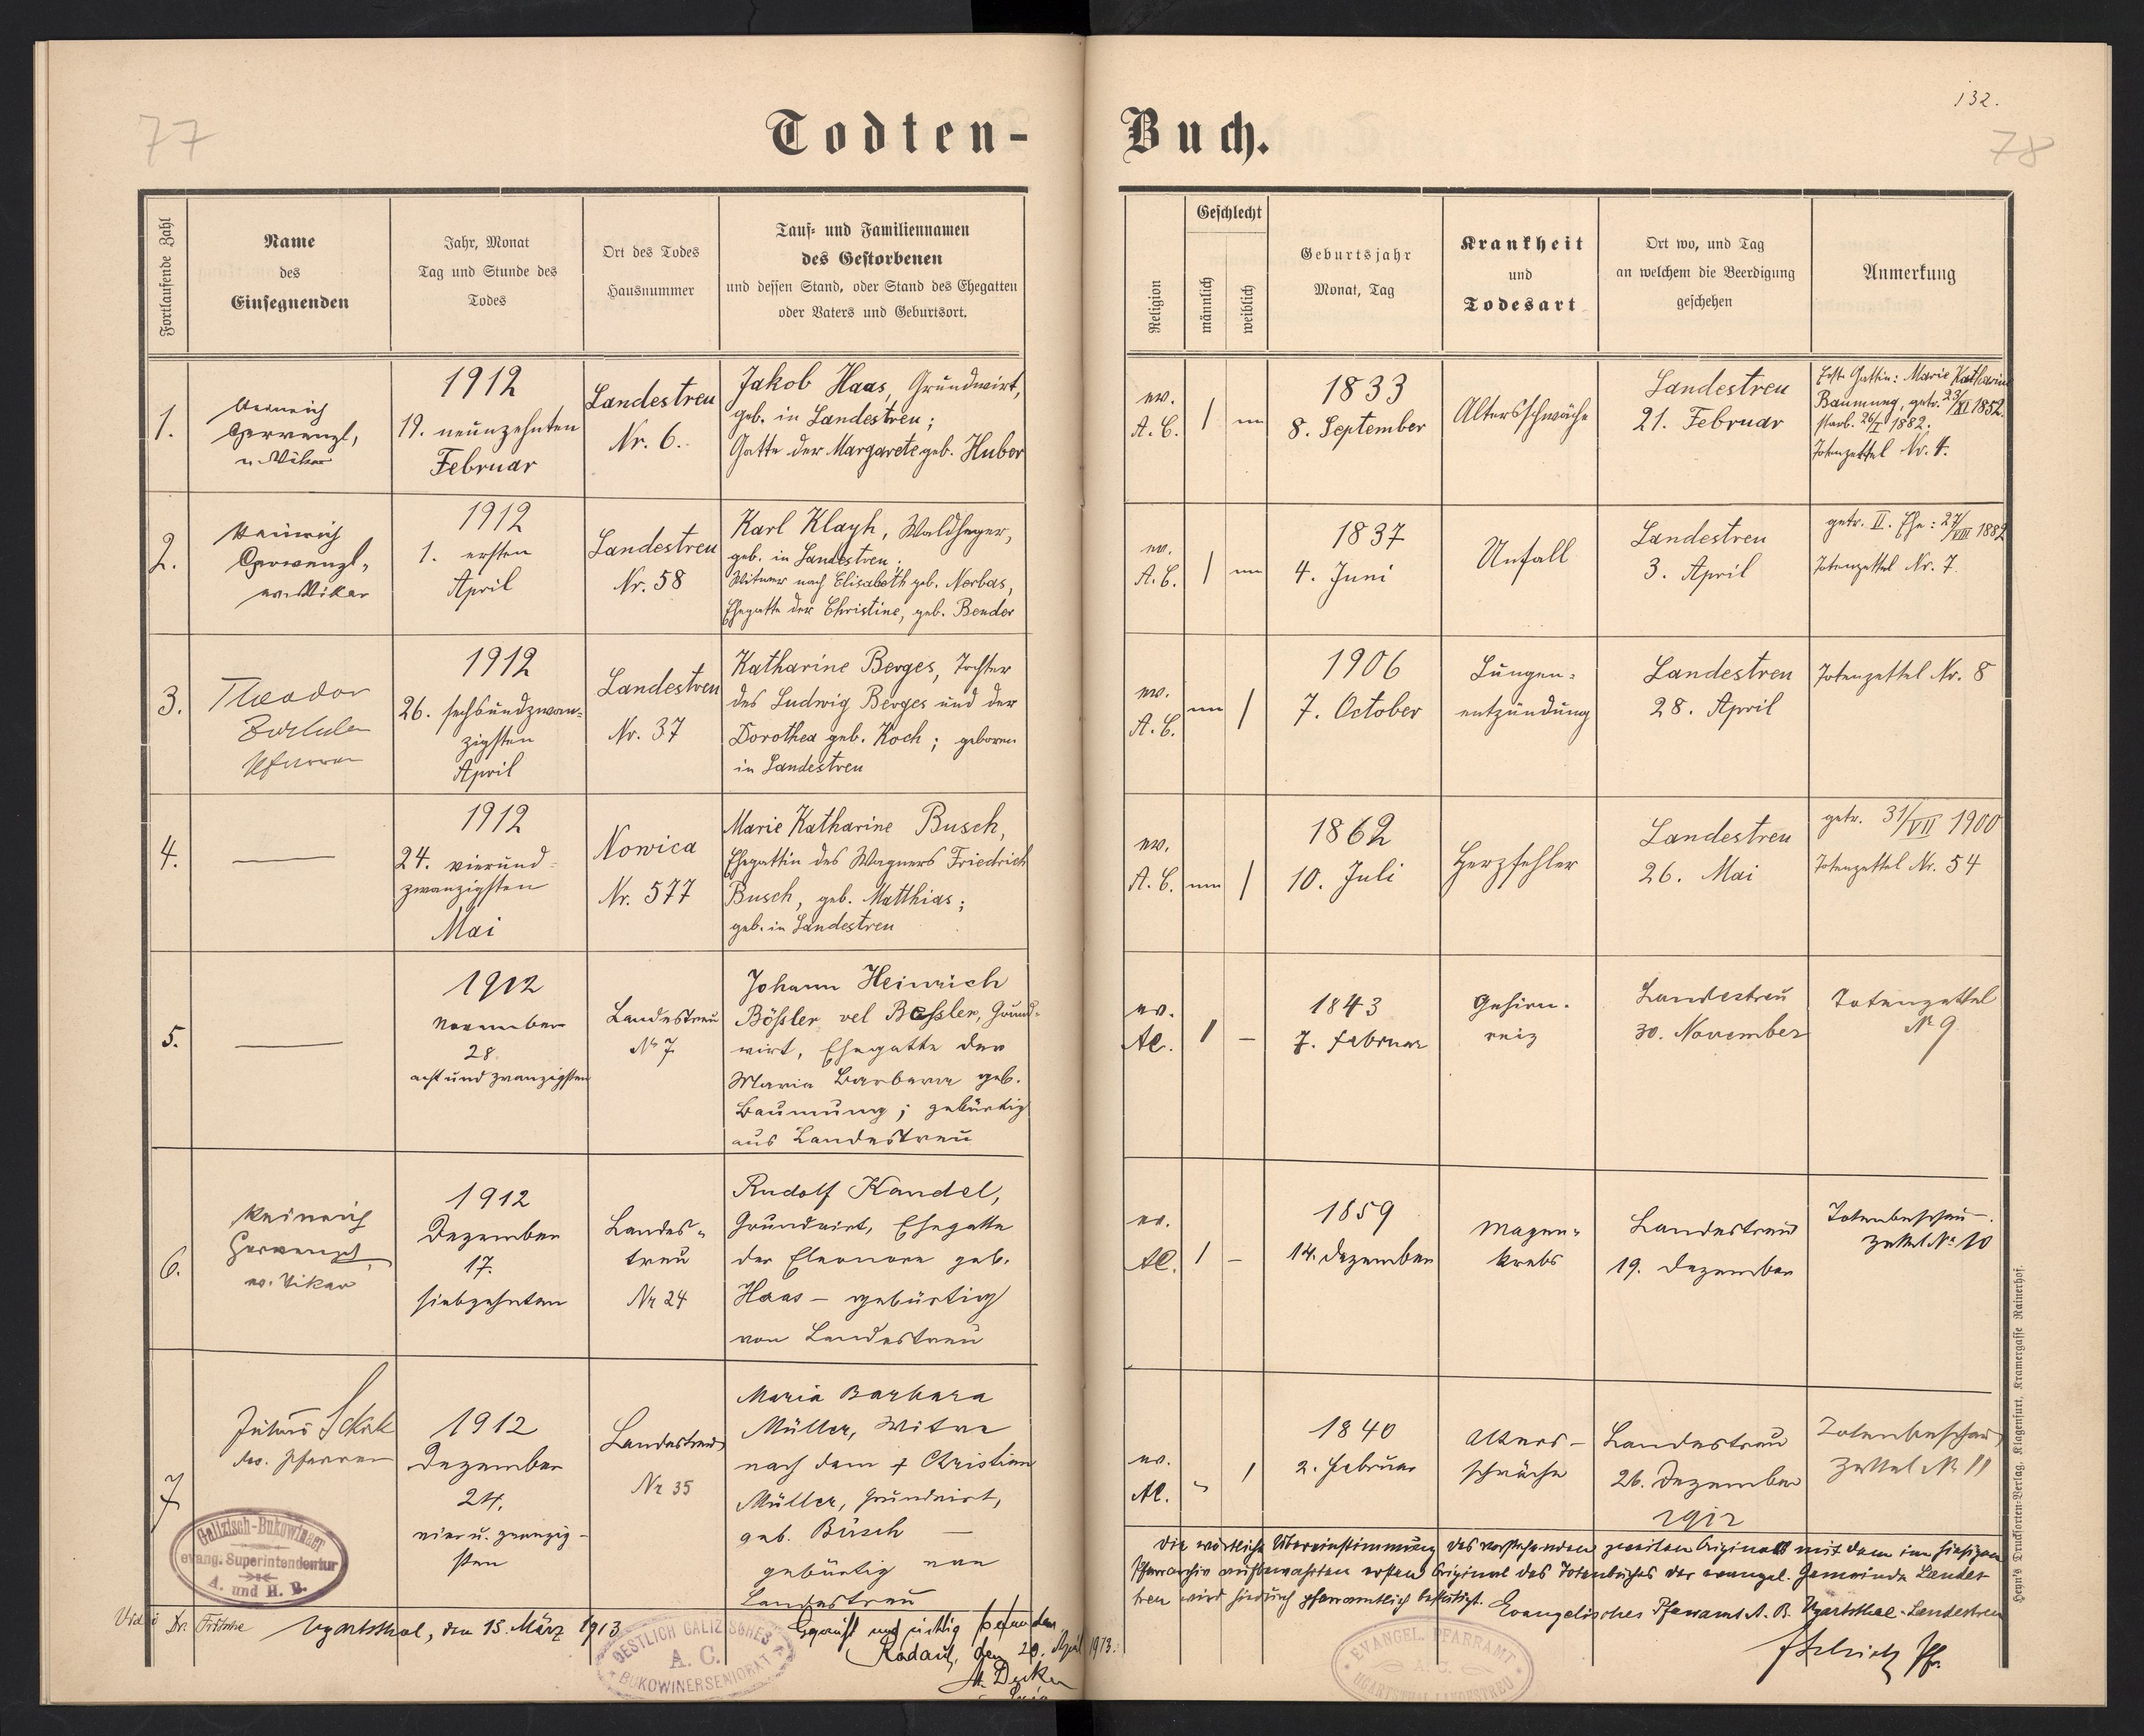 77
Todten-
Buch.
132.
78
Fortlaufende Zahl
Name
des
Einsegnenden
Jahr, Monat
Tag und Stunde des
Todes
Ort des Todes
Hausnummer
Tauf- und Familiennamen
des Gestorbenen
und dessen Stand, oder Stand des Ehegatten
oder Vaters und Geburtsort.
Religion
Geschlecht
männlich
weiblich
Geburtsjahr
Monat, Tag
Krankheit
und
Todesart
Ort wo, und Tag
an welchem die Beerdigung
geschehen
Anmerkung
1.
Heinrich
ev. Vikar
1912
19. neunzehnten
Februar
Landestreu
Nr. 6.
Jakob Haas, Grundwirt,
geb. in Landestreu;
Gatte der Margarete geb. Huber
ev.
A. C.
1
1833
8. September
Altersschwäche
Landestreu
21. Februar
Erste Gattin: Marie Katharine
Baumung, getr. 23/XI 1852.
starb. 26/I 1882.
Totenzettel Nr. 4.
2.
Heinrich
ev. Vikar
1912
1. ersten
April
Landestreu
Nr. 58
Karl Klayh, Waldheger,
geb. in Landestreu;
Witwer nach Elisabeth geb. Nerbas,
Ehegatte der Christine, geb. Bender
ev.
A. C.
1
1837
4. Juni
Unfall
Landestreu
3. April
getr. II. Ehe: 27/VIII 1882
Totenzettel Nr. 7.
3.
Theodor
Pfarrer
1912
26. sechsundzwan-
zigsten
April
Landestreu
Nr. 37
Katharine Berges, Tochter
des Ludwig Berges und der
Dorothea geb. Koch; geboren
in Landestreu
ev.
A. C.
1
1906
7. October
Lungen-
entzündung
Landestreu
28. April
Totenzettel Nr. 8
4.
1912
24. vierund-
zwanzigsten
Mai
Nowica
Nr. 577
Marie Katharine Busch,
Ehegattin des Wagners Friedrich
Busch, geb. Matthias;
geb. in Landestreu
ev.
A. C.
1
1862
10. Juli
Herzfehler
Landestreu
26. Mai
getr. 31/VII 1900
Totenzettel Nr. 54
5.
1912
November
28.
acht und zwanzigsten
Landestreu
Nr 7.
Johann Heinrich
Bößler vel Beßler, Grund-
wirt, Ehegatte der
Maria Barbara geb.
Baumung; gebürtig
aus Landestreu
ev.
AC.
1 –
1843
7. Februar
Gehirn-
reiz
Landestreu
30. November
Totenzettel
Nr 9
6.
Heinrich
ev. Vikar
1912
Dezember
17.
siebzehnten
Landes-
treu
Nr 24
Rudolf Kandel,
Grundwirt, Ehegatte
der Eleonore geb.
Haas – gebürtig
von Landestreu
ev.
AC.
1 –
1859
14. Dezember
Magen-
krebs
Landestreu
19. Dezember
Totenbeschau-
zettel Nr 10
7
Julius Schick
ev. Pfarrer
1912
Dezember
24.
vier u. zwanzig-
sten
Landestreu
Nr 35
Maria Barbara
Müller, Witwe
nach dem + Christian
Müller, Grundwirt,
geb. Busch –
gebürtig von
Landestreu
ev.
AC.
1
1840
2. Februar
Alters-
schwäche
Landestreu
26. Dezember
1912
Totenbeschau
Zettel Nr 11
Die wörtliche Übereinstimmung des vorstehenden zweiten Originals mit dem im hiesigen
Pfarrarchiv aufbewahrten ersten Original des Totenbuches der evangel. Gemeinde Landes-
treu wird hiedurch pfarramtlich bestätigt. Evangelisches Pfarramt A. B. Ugartsthal-Landestreu
Galizisch-Bukowinaer
evang. Superintendentur
A. und H. B.
Vidi: Dr. Fritsche
Ugartsthal, den 15. März 1913
OESTLICH GALIZISCHES
A. C.
BUKOWINERSENIORAT
Geprüft und richtig befunden
Radautz, den 20. April 1913.
EVANGEL. PFARRAMT
A. C.
UGARTSTHAL LANDESTREU
JSchick Pfr.
Heyn's Drucksorten-Verlag, Klagenfurt, Kramergasse Rainerhof.